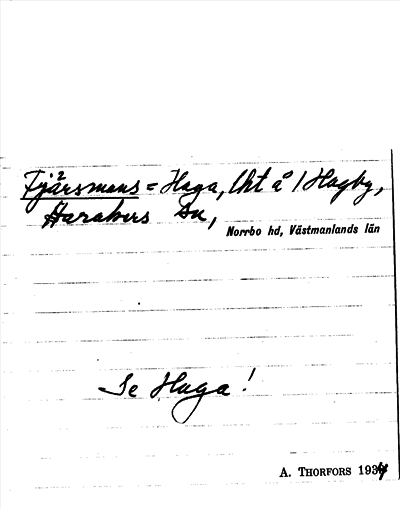 Fjärsmans = Haga, lht å 1 Hagby,
Harakers sn,
Norrbo hd, Västmanlands län
Se Haga!
A. THORFORS 1934